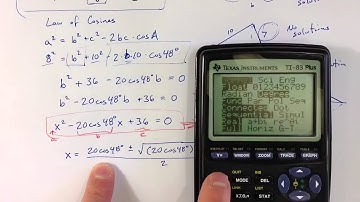 Law of Cosines
a² = b² + c² - 2bc·cosA
8² = b² + 10² - 2·b·10·cos48°
b² + 36 - 20cos48°b = 0
b² - 20cos48°b + 36 = 0
x² - 20cos48°x + 36 = 0
x = 20cos48° ± √(20cos48°)
2
No
solutions
7
TEXAS INSTRUMENTS TI-83 Plus
Normal Sci Eng
Float 0123456789
Radian Degree
Func Par Pol Seq
Connected Dot
Sequential Simul
Real a+bi re^θi
Full Horiz G-T
Y=
WINDOW
ZOOM
TRACE
GRAPH
QUIT
INS
MODE
DEL